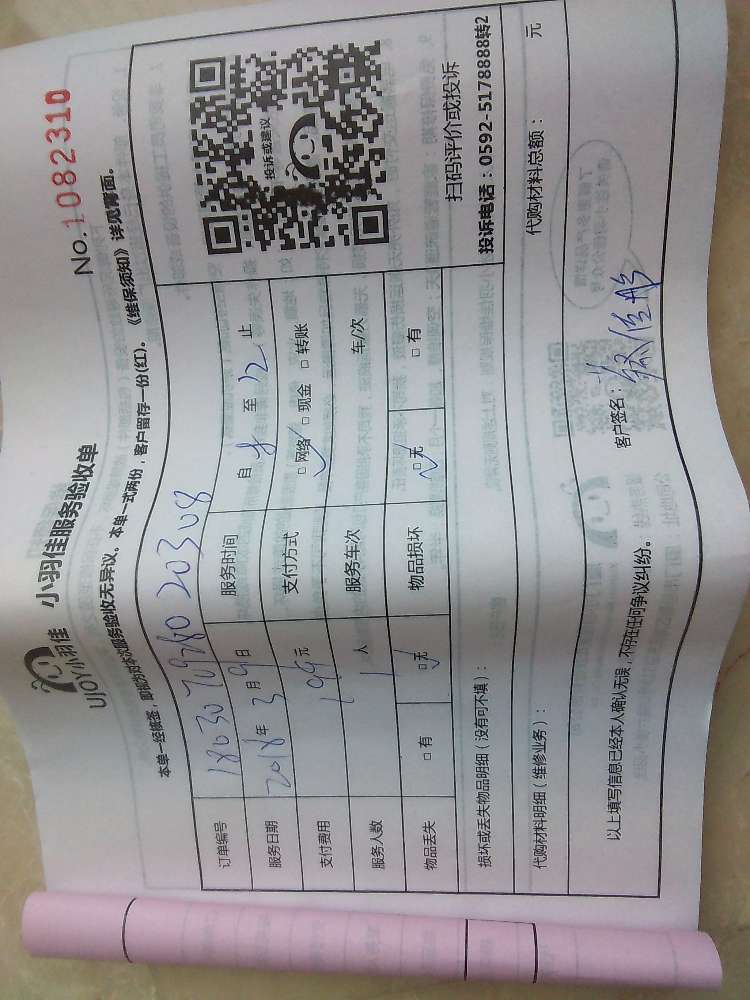 No.1082310
UJOY小羽佳 小羽佳服务验收单
本单一经核签，即视为对本次服务验收无异议。本单一式两份，客户留存一份(红)。《维保须知》详见背面。
订单编号 1803070928020308
服务日期 2018年3月9日 服务时间 自 8 至 12 止
支付费用 199元 支付方式 □网络 □现金 □转账
服务人数 1人 服务车次 车/次
物品丢失 □有 □无 物品损坏 □无 □有
投诉或建议
扫码评价或投诉
投诉电话：0592-5178888转2
损坏或丢失物品明细（没有可不填）：
代购材料明细（维修业务）： 代购材料总额： 元
以上填写信息已经本人确认无误，不存在任何争议纠纷。 客户签名：